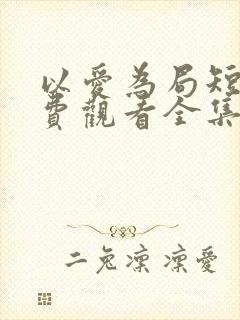 以愛為局短
費觀看全集
二兔凜凜愛